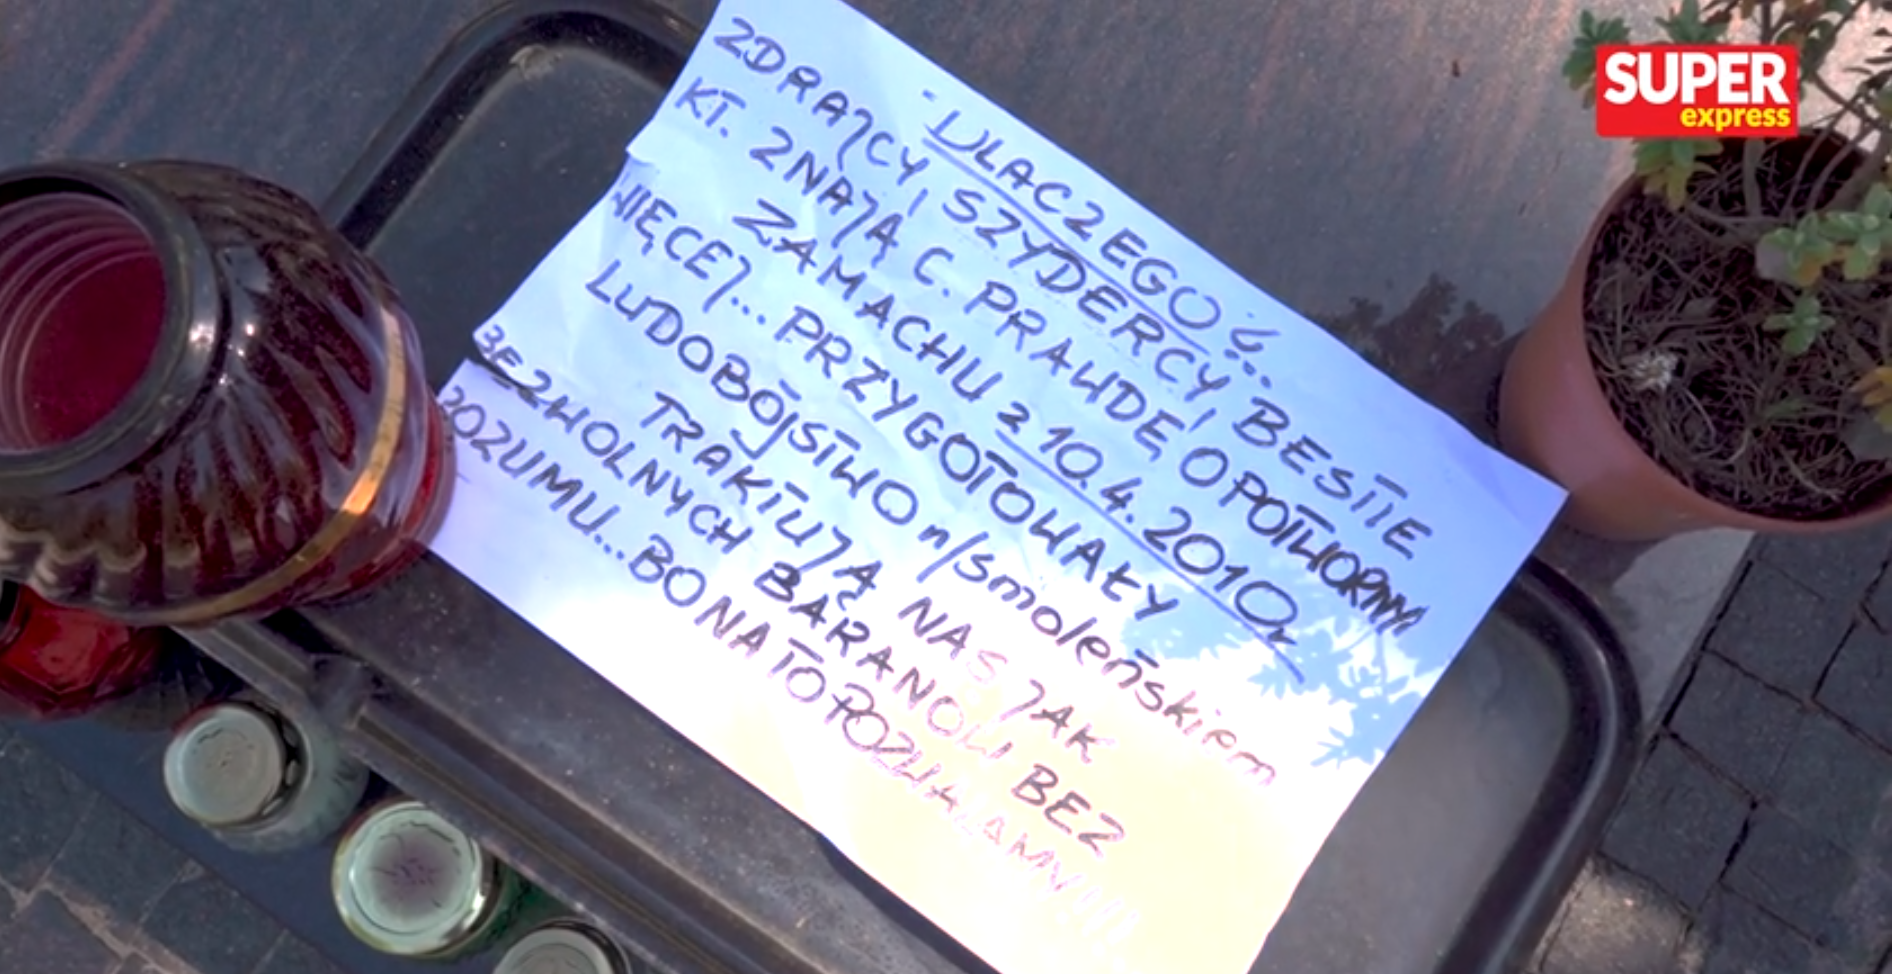 SUPER
express
- DLACZEGO ?...
ZDRAJCY, SZYDERCY, BESTIE
KT. ZNAJĄ C. PRAWDĘ O POTWORNYM
ZAMACHU z 10.4.2010r
WIĘCEJ... PRZYGOTOWAŁY
LUDOBÓJSTWO n/smoleńskiem
TRAKTUJĄ NAS JAK
BEZWOLNYCH BARANÓW BEZ
ROZUMU... BO NA TO POZWALAMY!!!